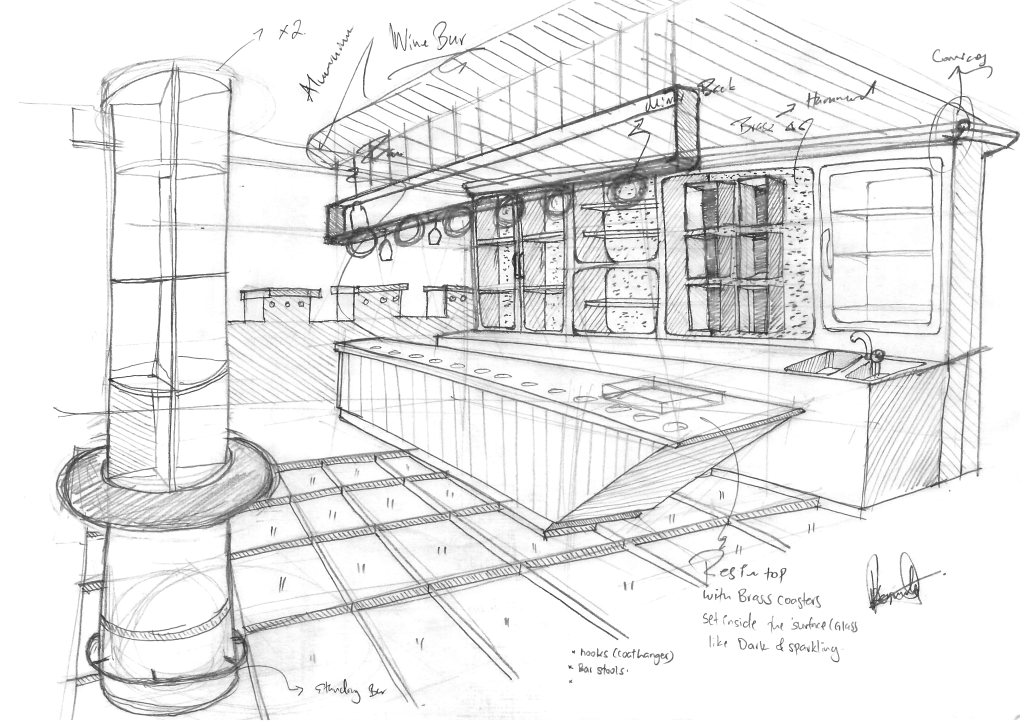 x2
Wine Bar
Aluminium
Back
Brass
Hammered
Resin top
with Brass coasters
set inside the surface (Glass
like Dark & sparkling.
* hooks (coathanger)
* Bar stools.
*
Standing Bar